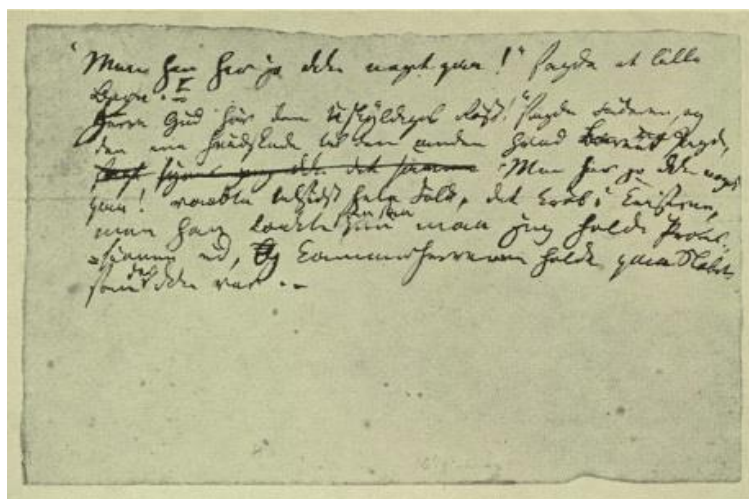 "Men han har jo ikke noget paa!" sagde et lille
Barn. –
Herre Gud hør den Uskyldiges Røst!" sagde Faderen, og
den ene hvidskede til den anden hvad Barnet sagde,
Men har jo ikke noget
paa! raabte tilsidst hele Folk, det krøb i Keiseren,
men han tænkte som saa nu maa jeg holde Proces-
=sionen ud, Og Kammerherrerne holdt paa Slæbet
som der ikke var. –